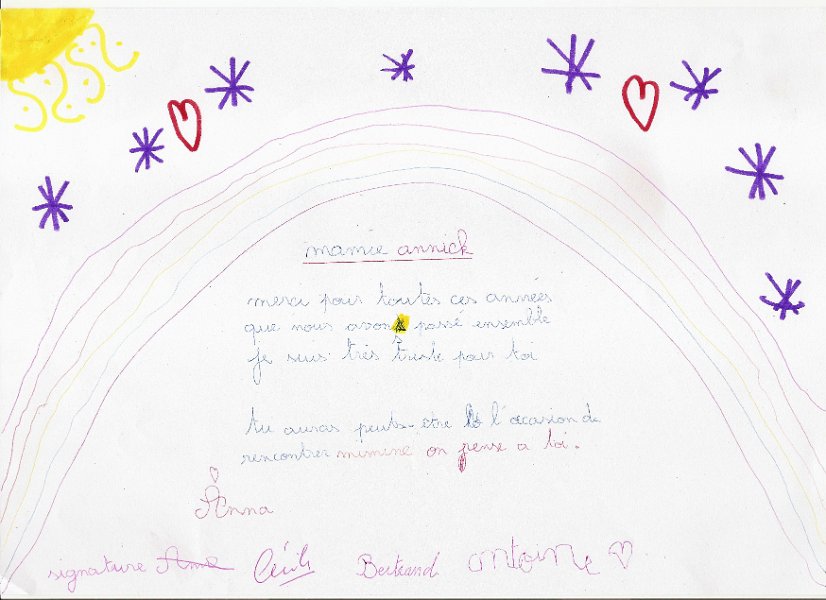 mamie annick
merci pour toutes ces années
que nous avons passé ensemble
je suis très triste pour toi
tu auras peuts-être l'occasion de
rencontrer mimine on pense a toi.
Anna
signature Anna Cécile Bertrand antoine